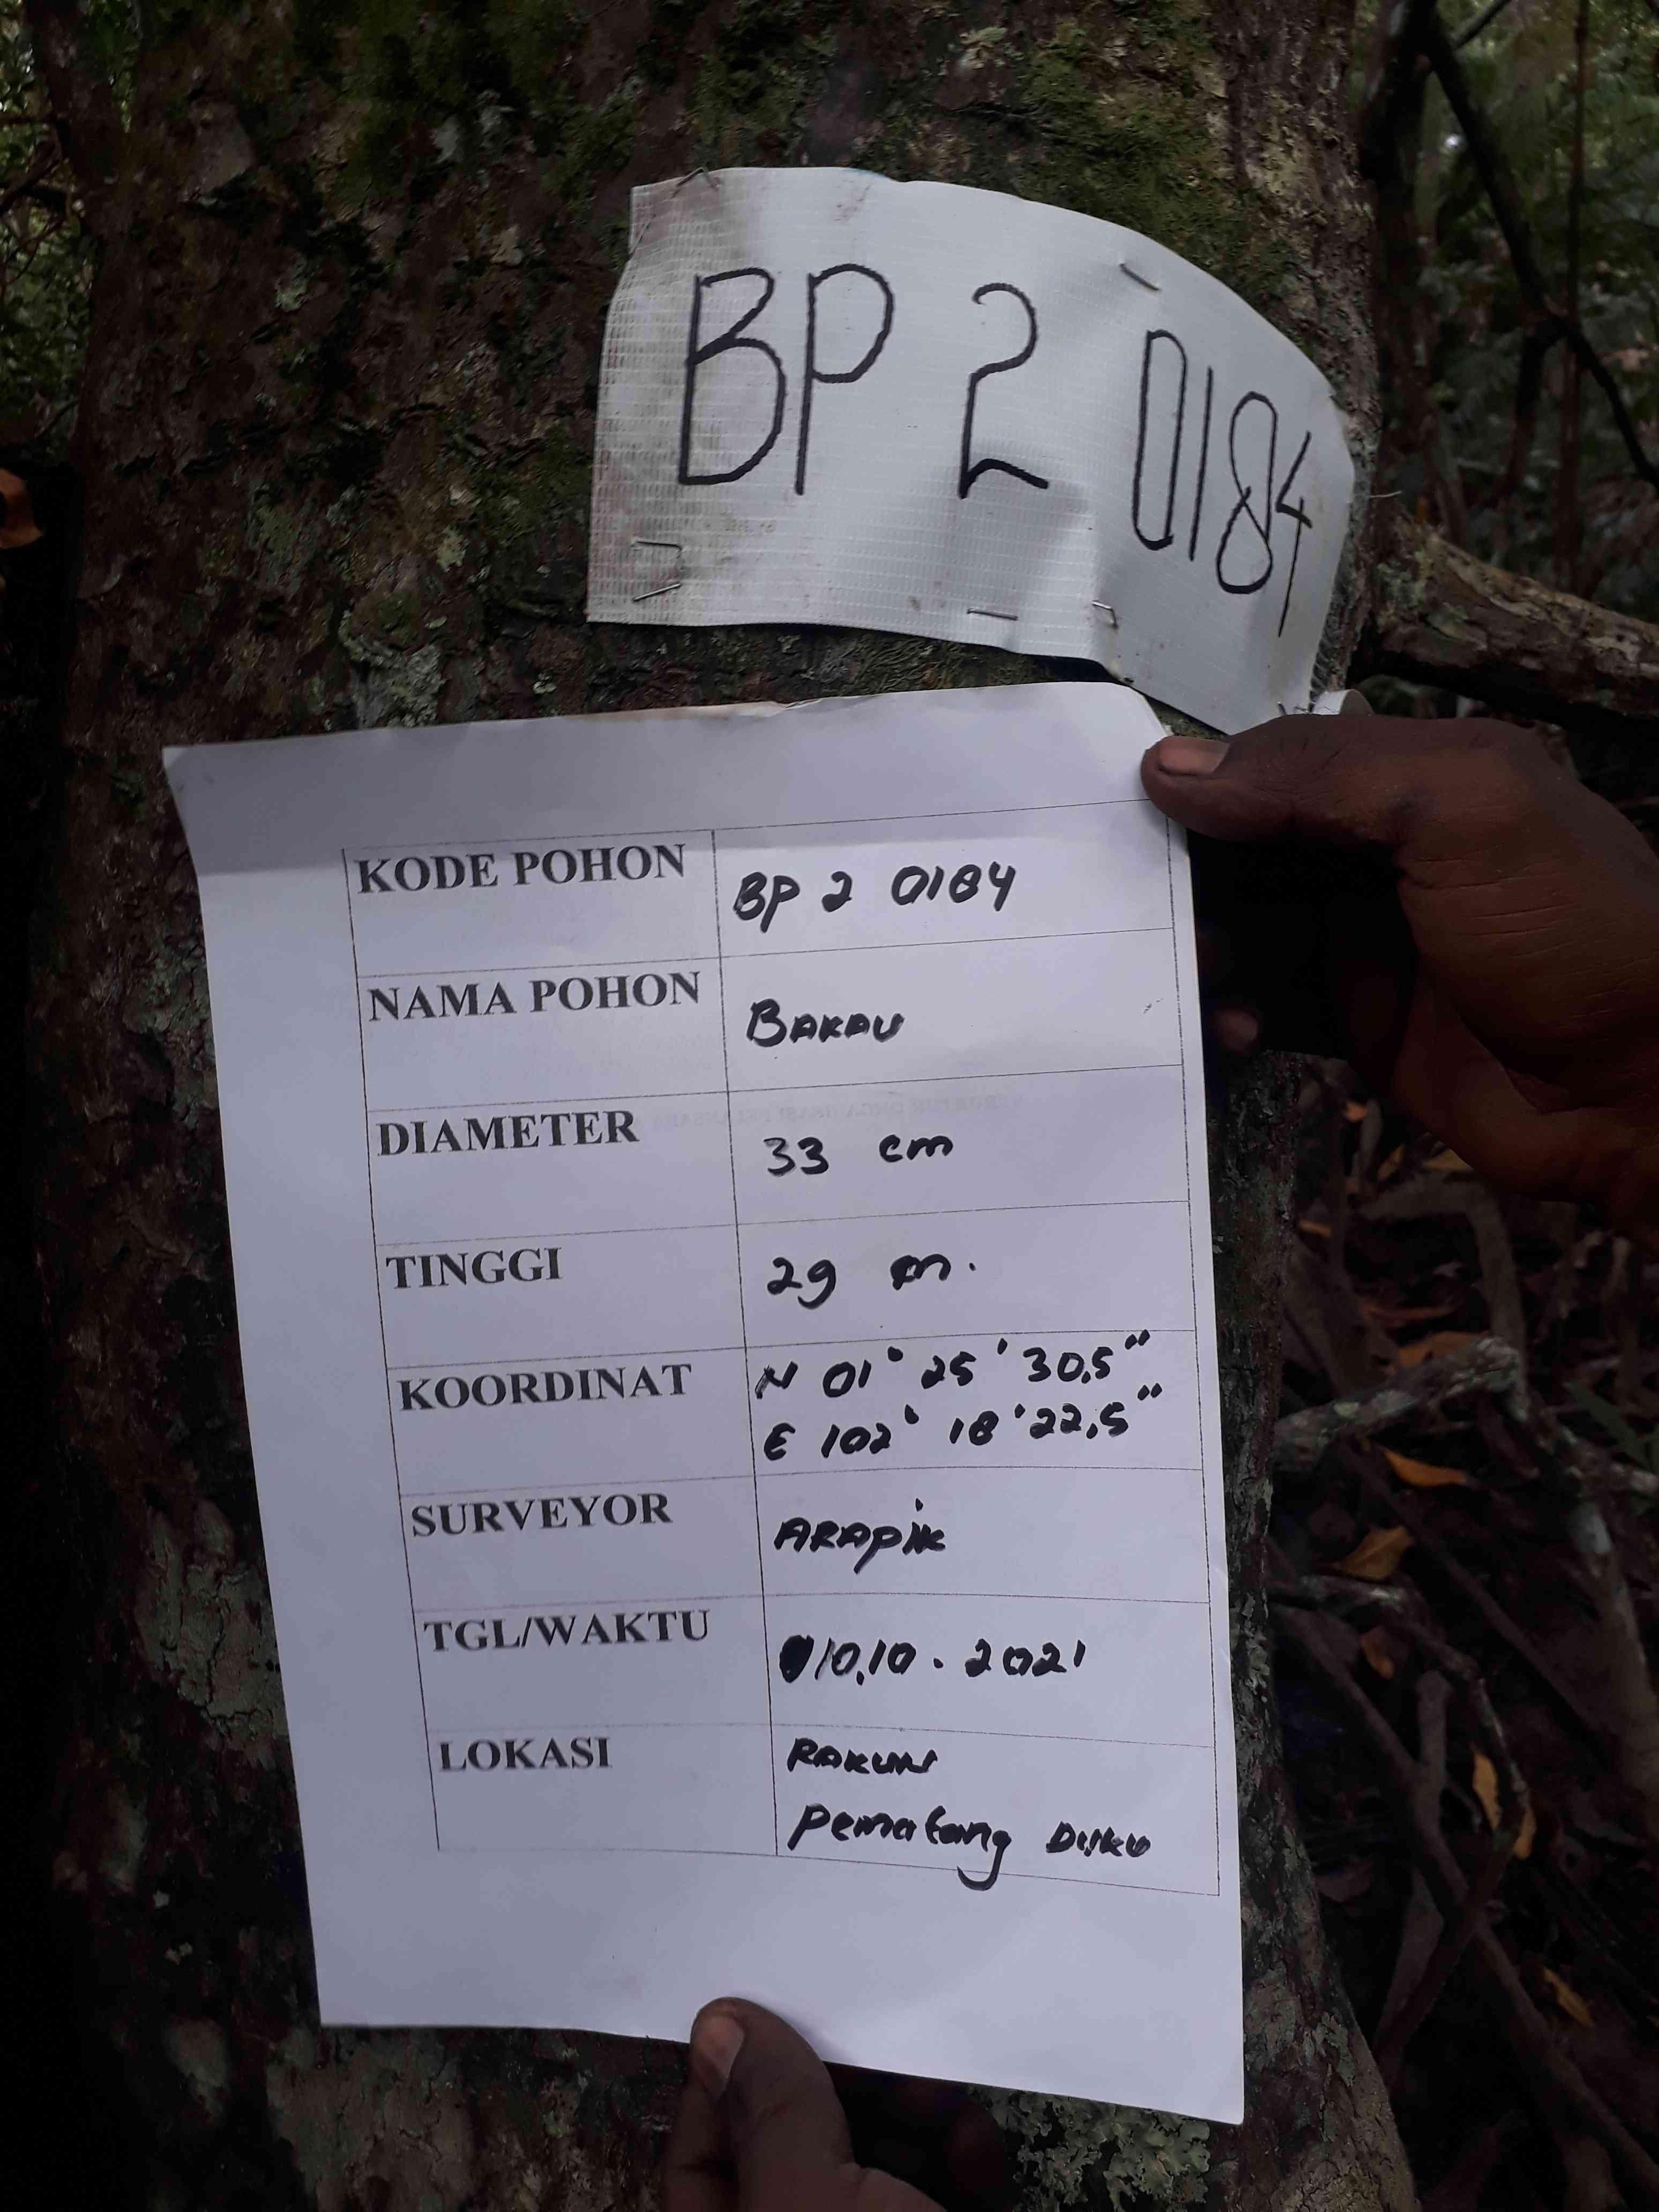 BP 2 0184
KODE POHON BP 2 0184
NAMA POHON BAKAU
DIAMETER 33 cm
TINGGI 29 m.
KOORDINAT N 01° 25 ' 30,5"
E 102° 18 ' 22,5"
SURVEYOR ARAPIK
TGL/WAKTU 10.10.2021
LOKASI RAKUN
Pematang Duku